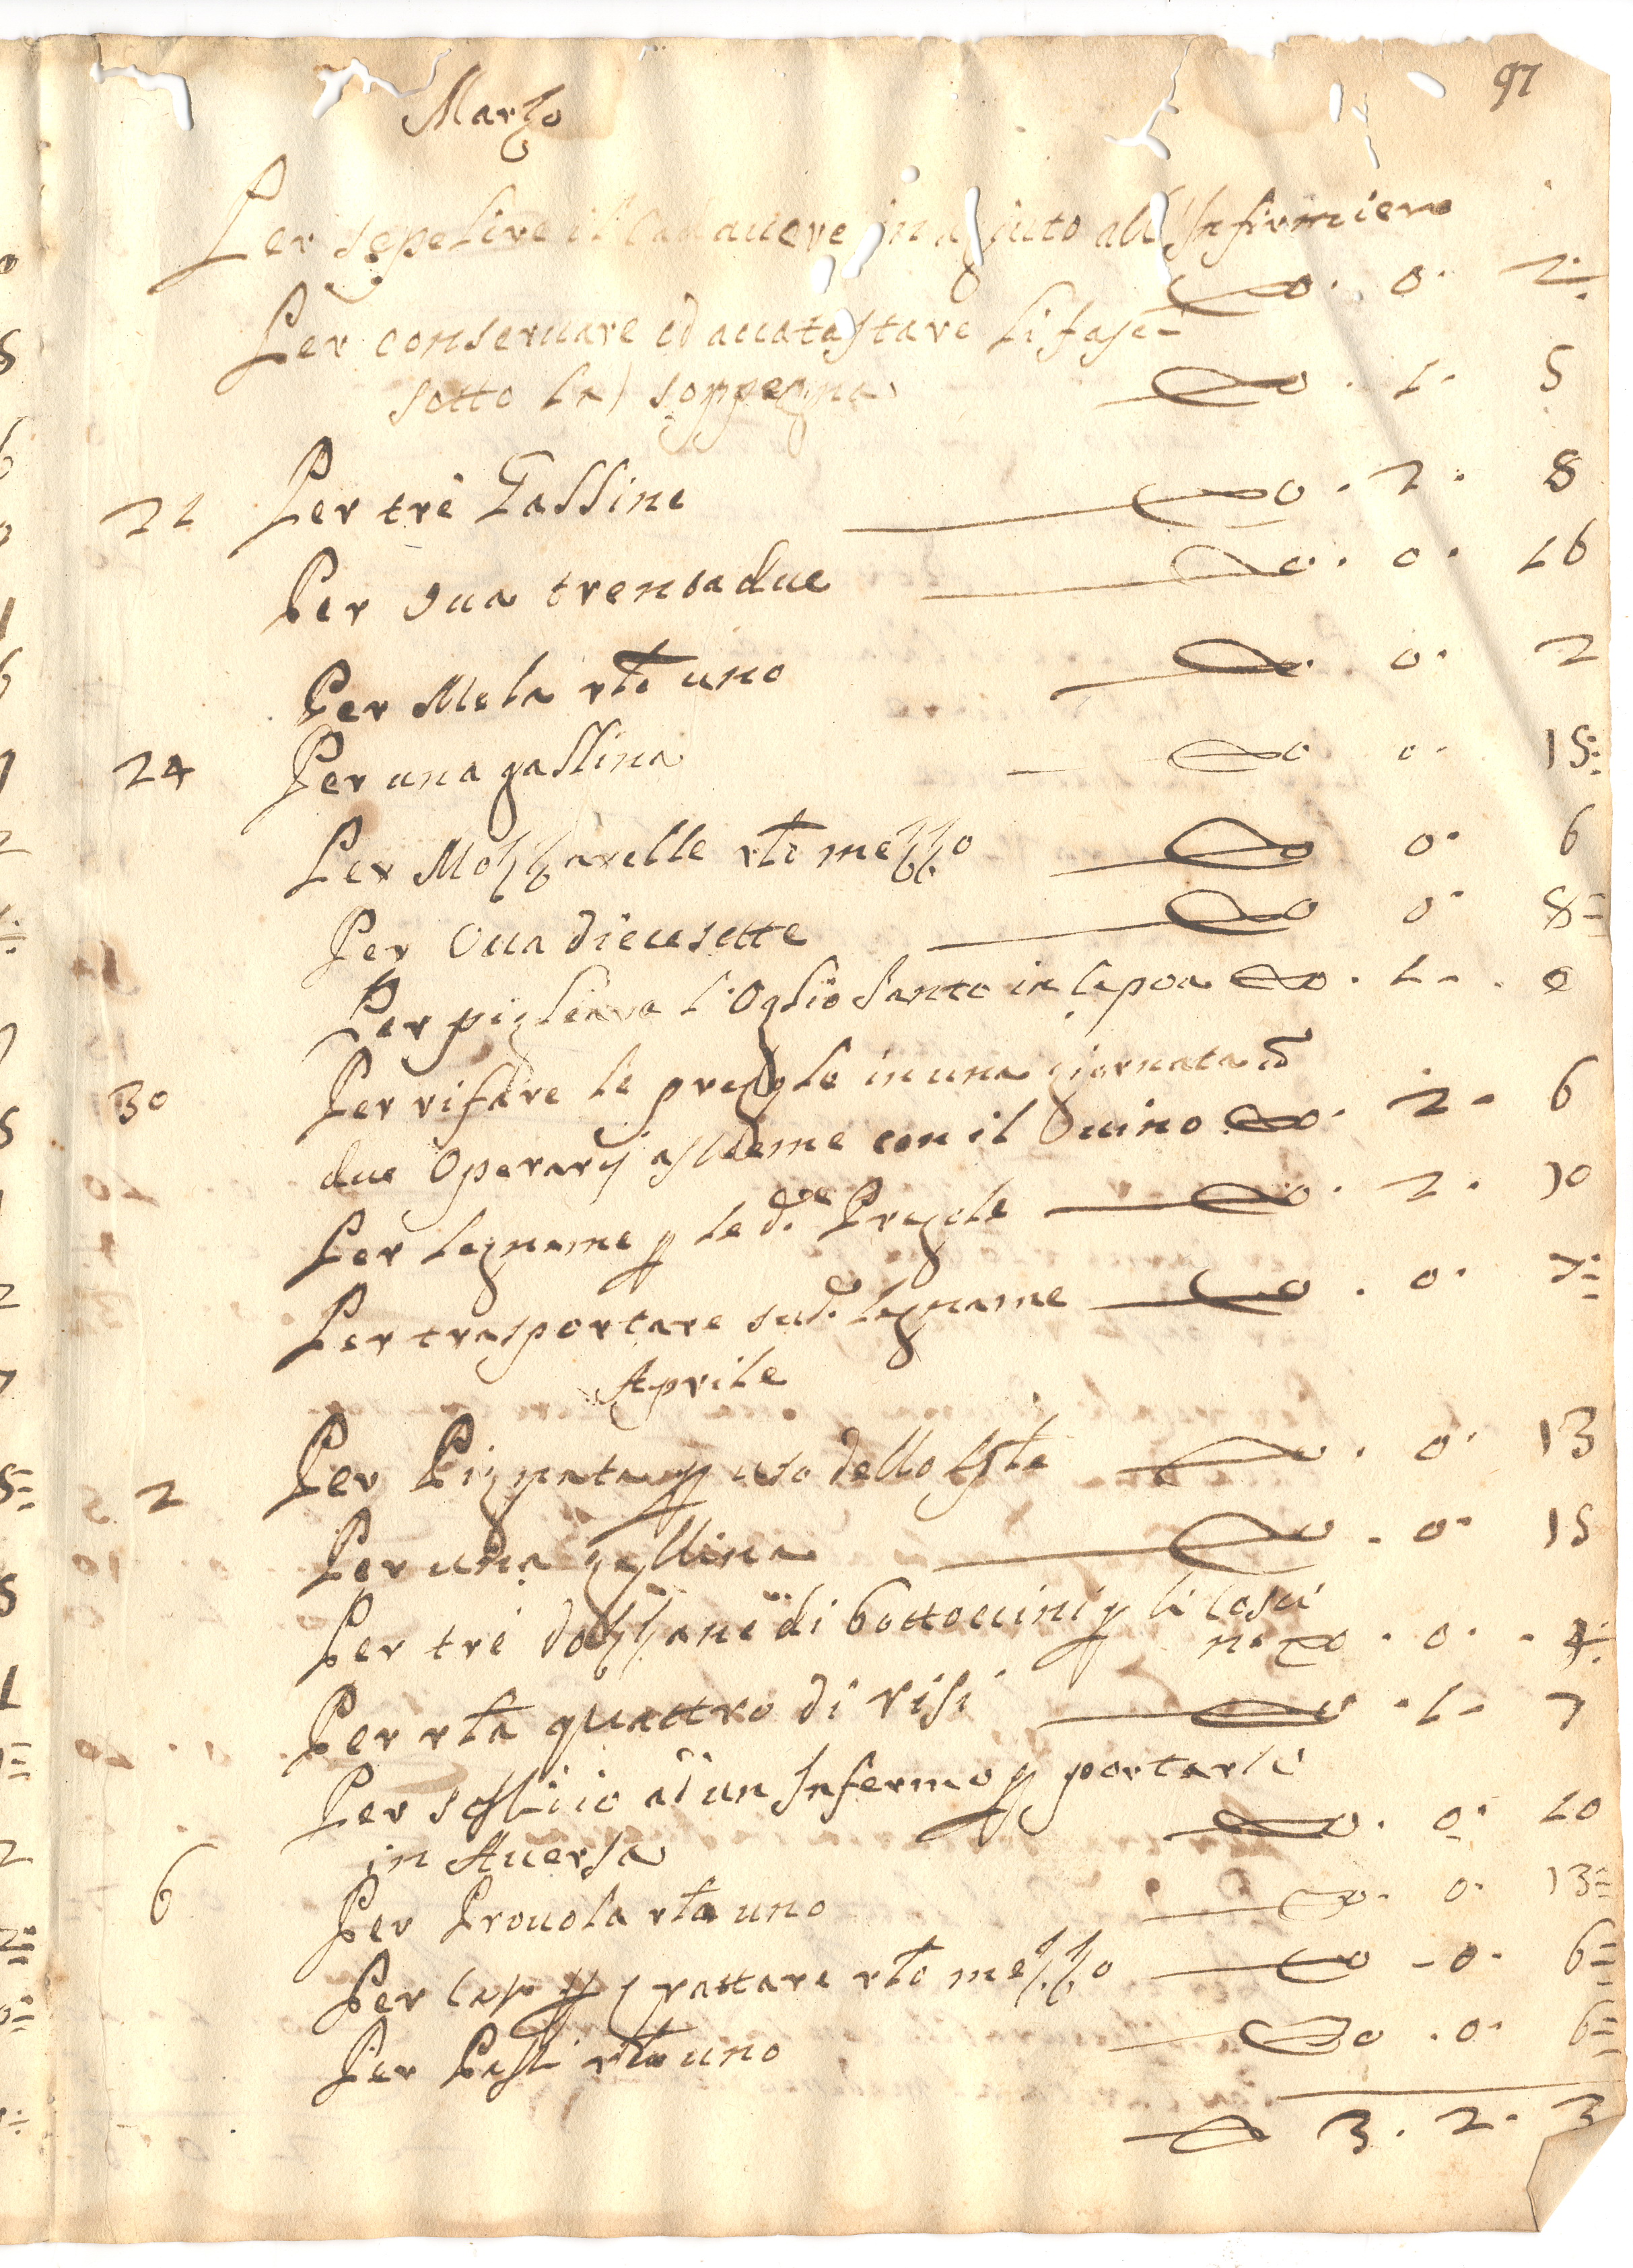 97
Marzo
Per sepelire il Cadauere in ajuto all'Infirmiero
0. 0. 2÷
Per conseruare ed accatastare li fasci
sotto la soppegna 0. 1. 5
22 Per tre Galline 0. 2. 8
Per Oua trentadue 0. 0. 16
Per Mela rlo uno 0. 0. 2
24 Per una gallina 0 0. 15÷
Per Mozzarelle rlo mezzo 0 0. 6
Per Oua diecesette 0 0. 8=
Per pigliare l'Oglio Santo in Capoa 0. 1. 0
30 Per rifare le pregole in una giornata
due Operarij assieme con il Vuino 0. 2. 6
Per legname p le d.e Pregole 0. 2. 10
Per trasportare sud.o legname 0. 0. 7÷
Aprile
2 Per Pignata p uso dello 0. 0. 13
Per una gallina 0. 0. 15
Per tre dozzane di bottoccini p li Cosci
ni 0. 0. 4÷
Per rla quattro di risi 0. 1. 7
Per sossiio ad un Infermo p portarsi
in Auersa 0. 0. 10
6 Per Prouola rla uno 0. 0. 13=
Per Caso p grattare rlo mezzo 0. 0. 6=
Per rlo uno 0. 0. 6=
3. 2. 3